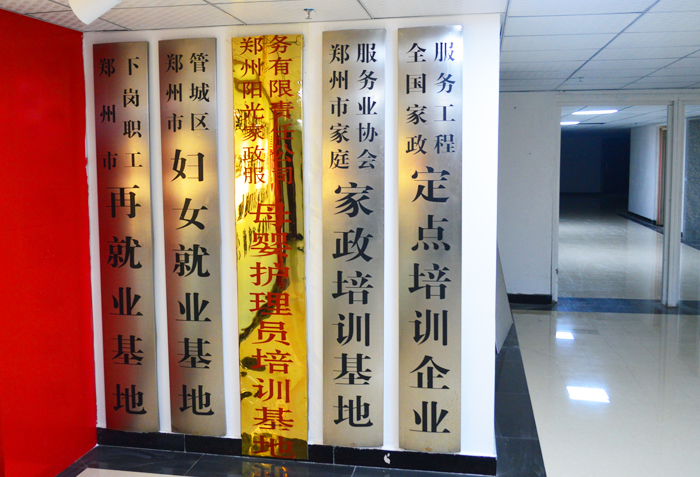 郑州市
下岗职工
再就业基地
郑州市
管城区
妇女就业基地
郑州阳光家政服
务有限责任公司
母婴护理员培训基地
郑州市家庭
服务业协会
家政培训基地
全国家政
服务工程
定点培训企业